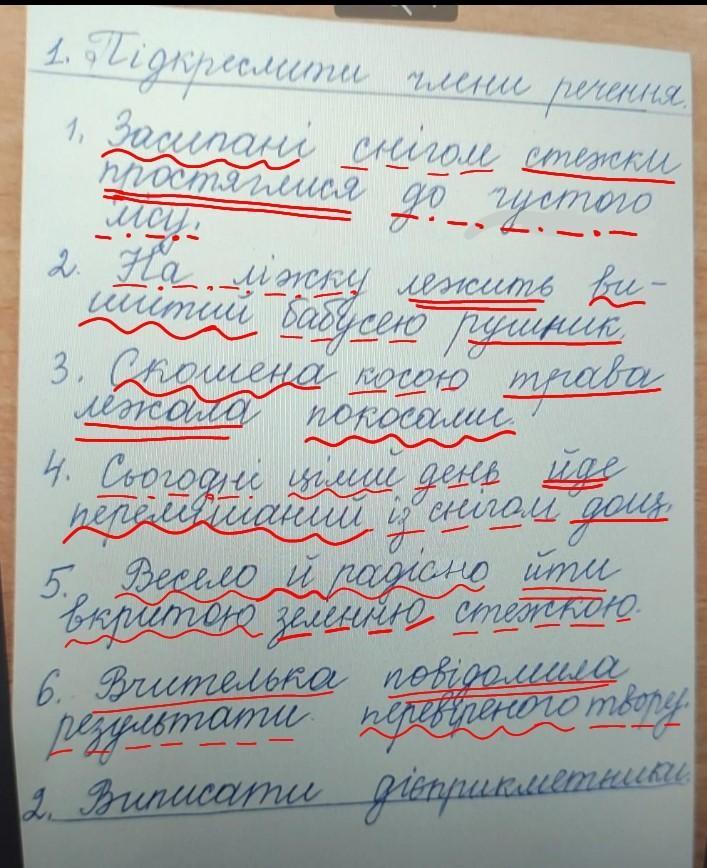 1. Підкреслити члени речення.
1. Засипані снігом стежки
простяглися до густого
лісу.
2. На ліжку лежить ви-
шитий бабусею рушник.
3. Скошена косою трава
лежала покосами.
4. Сьогодні цілий день йде
перемішаний із снігом дощ.
5. Весело й радісно йти
вкритою зеленню стежкою.
6. Вчителька повідомила
результати перевіреного твору.
2. Виписати дієприкметники.